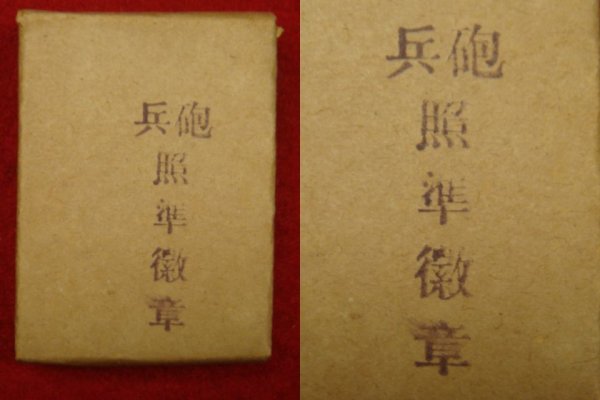 砲兵
照準徽章
砲兵
照準徽章